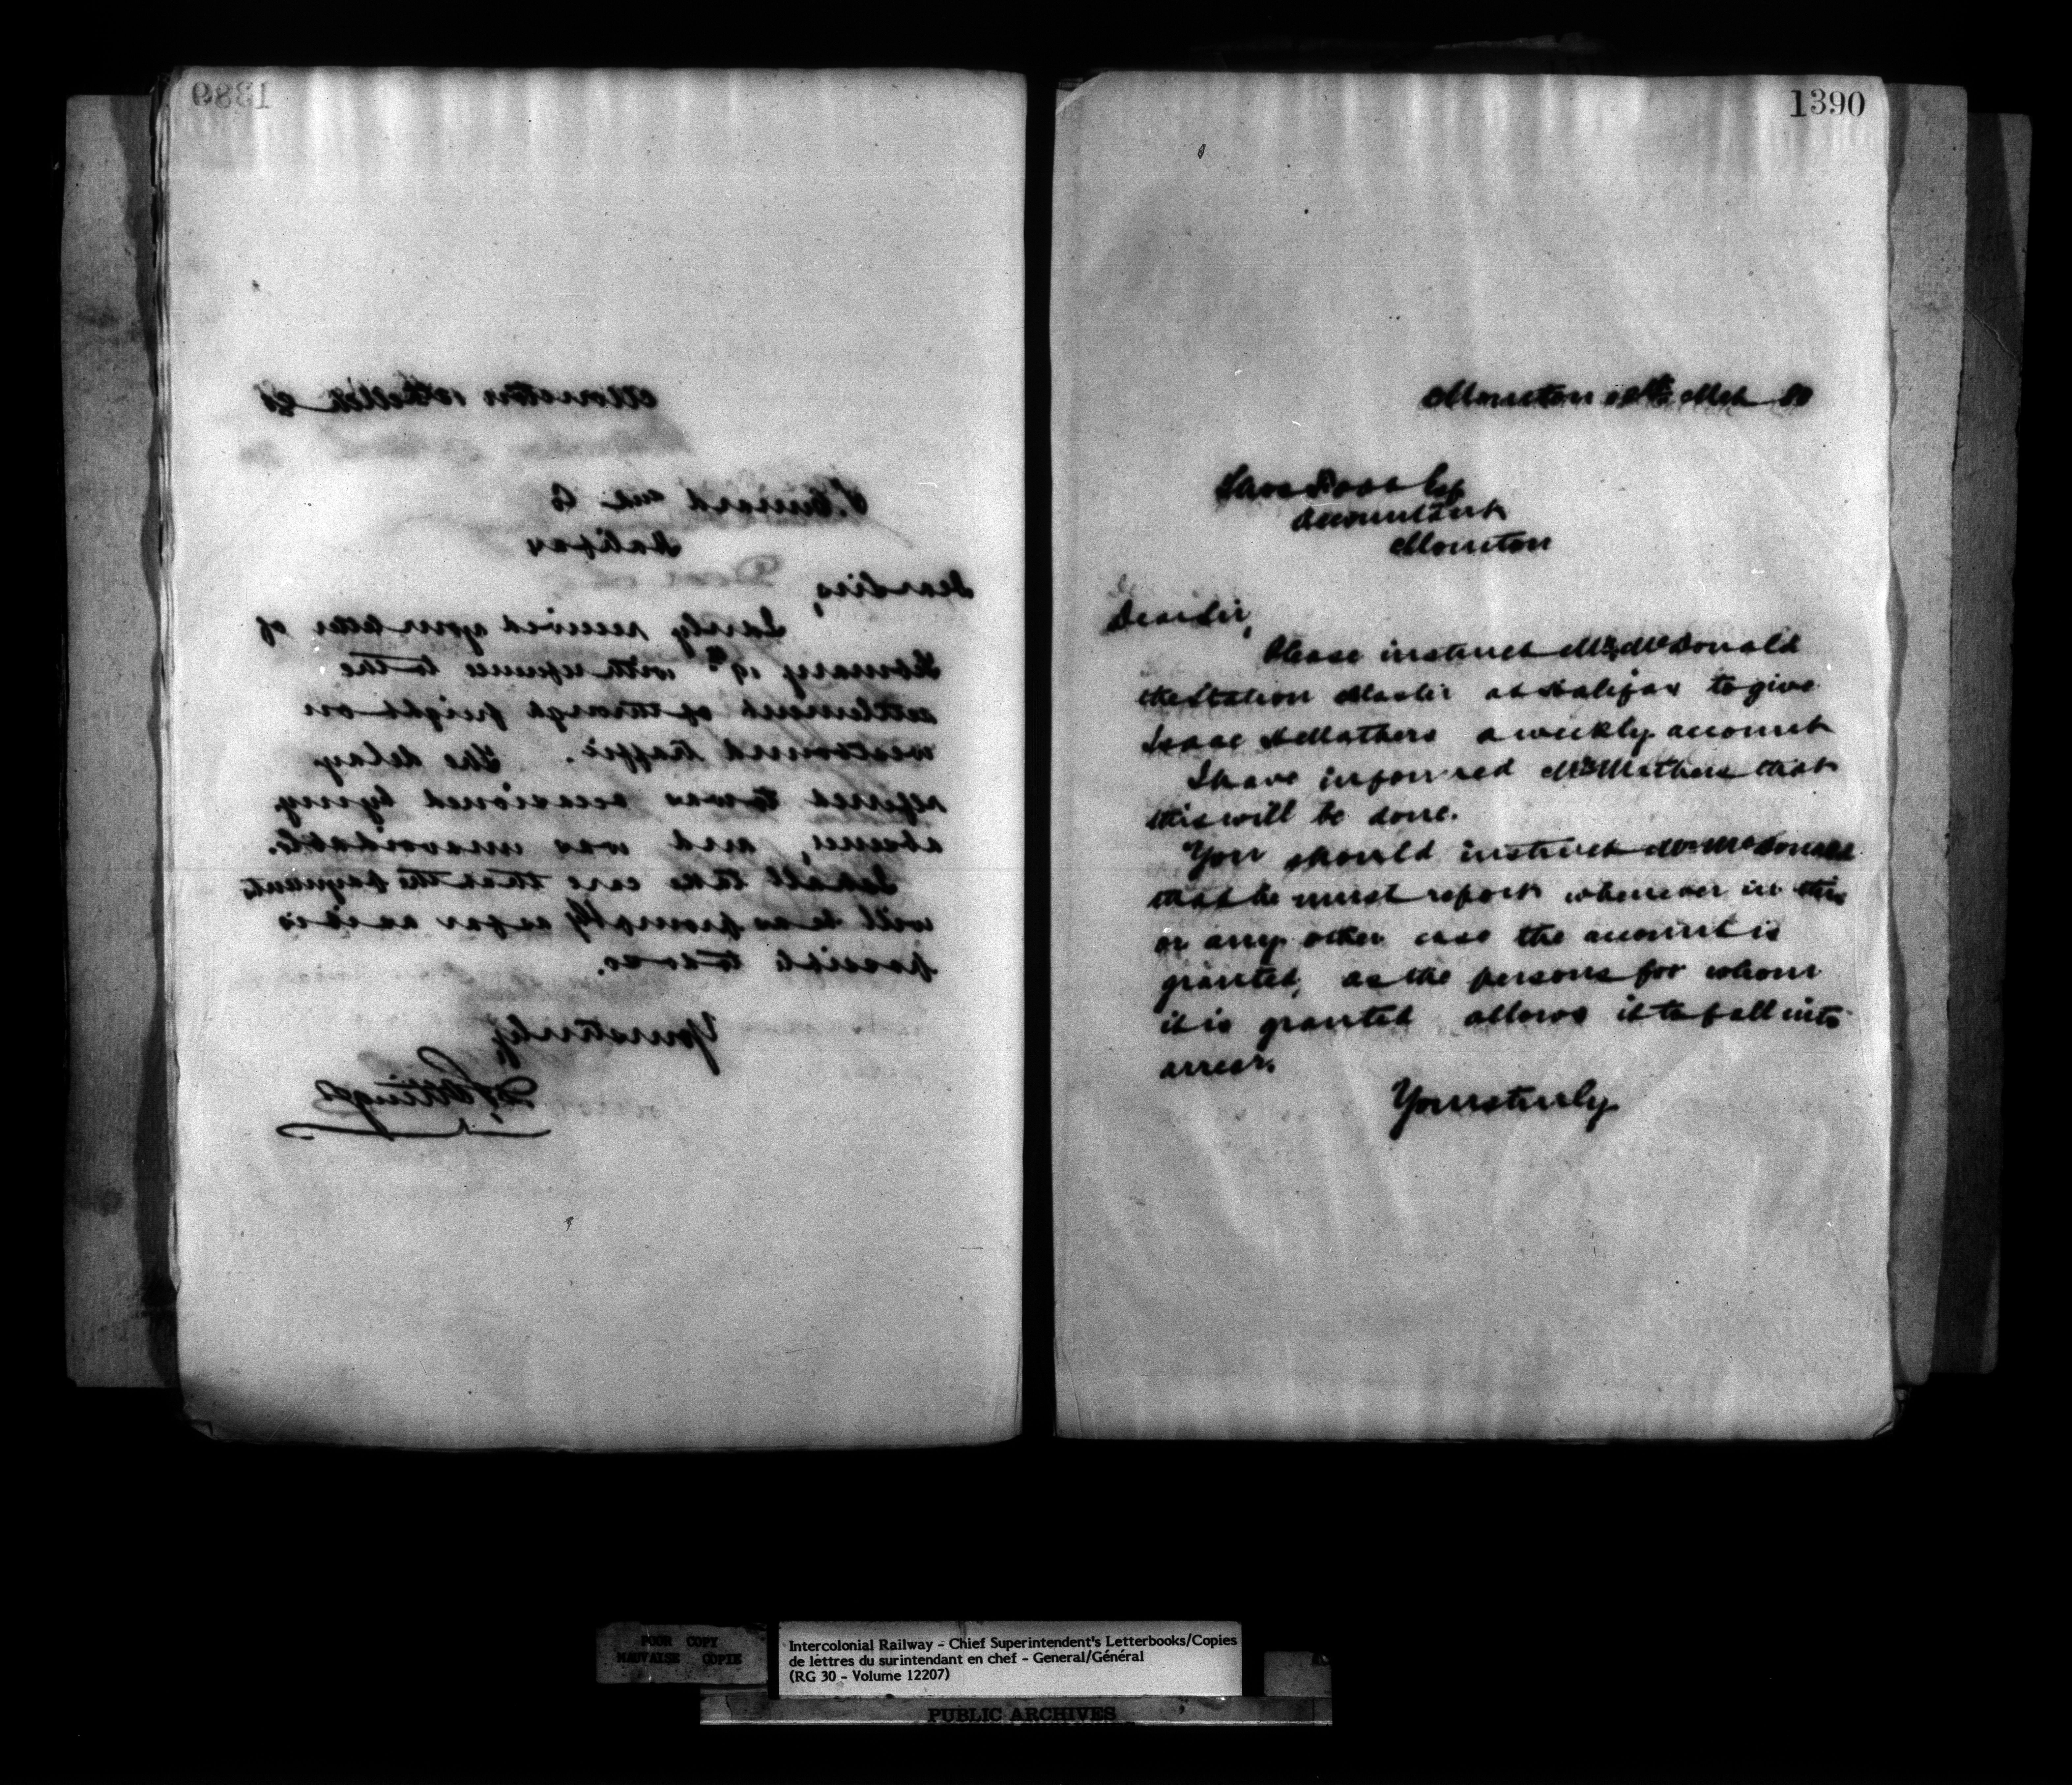 1389
Moncton 10th Mch 80
S. Cunard and Co
Halifax
Dear Sirs,
I only received your letter of
February 19th with reference to the
settlement of through freight on
westbound traffic. The delay
referred to was occasioned by my
absence, and was unavoidable.
I shall take care that the payments
will be as promptly as far as it is
possible to do so.
Yours truly
D Pottinger
1390
Moncton 10th Mch 80
Thos Foot Esq
Accountant
Moncton
Dear Sir,
Please instruct Mr McDonald
the Station Master at Halifax to give
Isaac H Mathers a weekly account
I have informed Mr Mathers that
this will be done.
You should instruct Mr McDonald
that he must report whenever in this
or any other case the account is
granted, as the persons for whom
it is granted allows it to fall into
arrear.
Yours truly
POOR COPY
MAUVAISE COPIE
Intercolonial Railway - Chief Superintendent's Letterbooks/Copies
de lettres du surintendant en chef - General/Général
(RG 30 - Volume 12207)
PUBLIC ARCHIVES